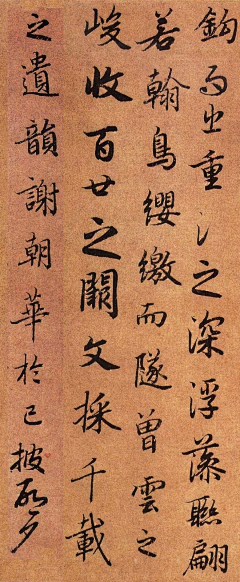 鈎而出重氵之深浮藻聯翩
若翰鳥纓繳而隧曾雲之
峻收百廿之闕文採千載
之遺韻謝朝華於已披啟夕